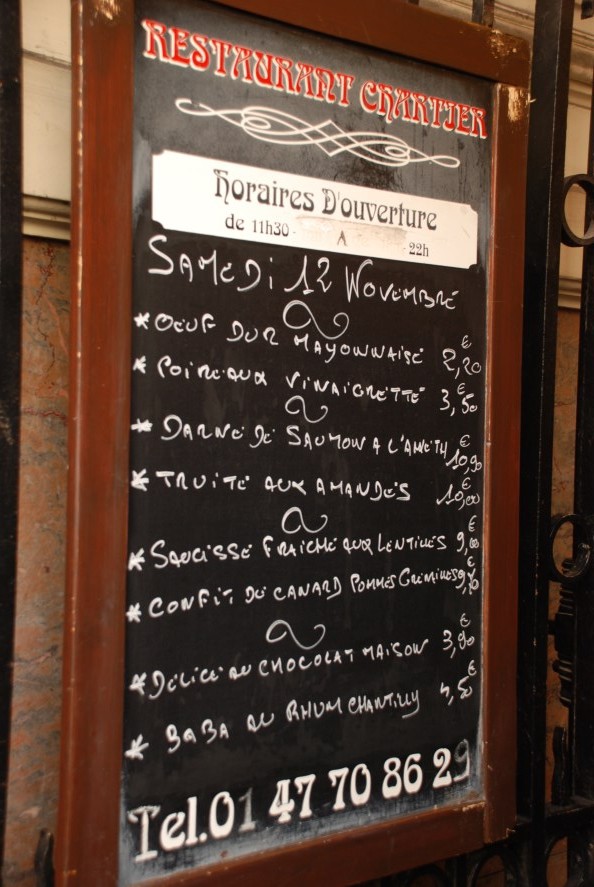 RESTAURANT CHARTIER
Horaires D'ouverture
de 11h30 - A - 22h
SAMEDI 12 NOVEMBRE
* OEUF DUR MAYONNAISE 2,20 €
* POIREAUX VINAIGRETTE 3,50 €
* DARNE DE SAUMON A L'ANETH 10,90 €
* TRUITE AUX AMANDES 10,00 €
* SAUCISSE FRAICHE AUX LENTILLES 9,00 €
* CONFIT DE CANARD POMMES GRENAILLES 9,70 €
* DELICE AU CHOCOLAT MAISON 3,90 €
* BABA AU RHUM CHANTILLY 4,50 €
Tel.01 47 70 86 29